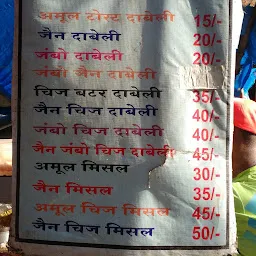 अमूल टोस्ट दाबेली 15/-
जैन दाबेली 20/-
जंबो दाबेली 20/-
जंबो जैन दाबेली
चिज बटर दाबेली 35/-
जैन चिज दाबेली 40/-
जंबो चिज दाबेली 40/-
जैन जंबो चिज दाबेली 45/-
अमूल मिसल 30/-
जैन मिसल 35/-
अमूल चिज मिसल 45/-
जैन चिज मिसल 50/-